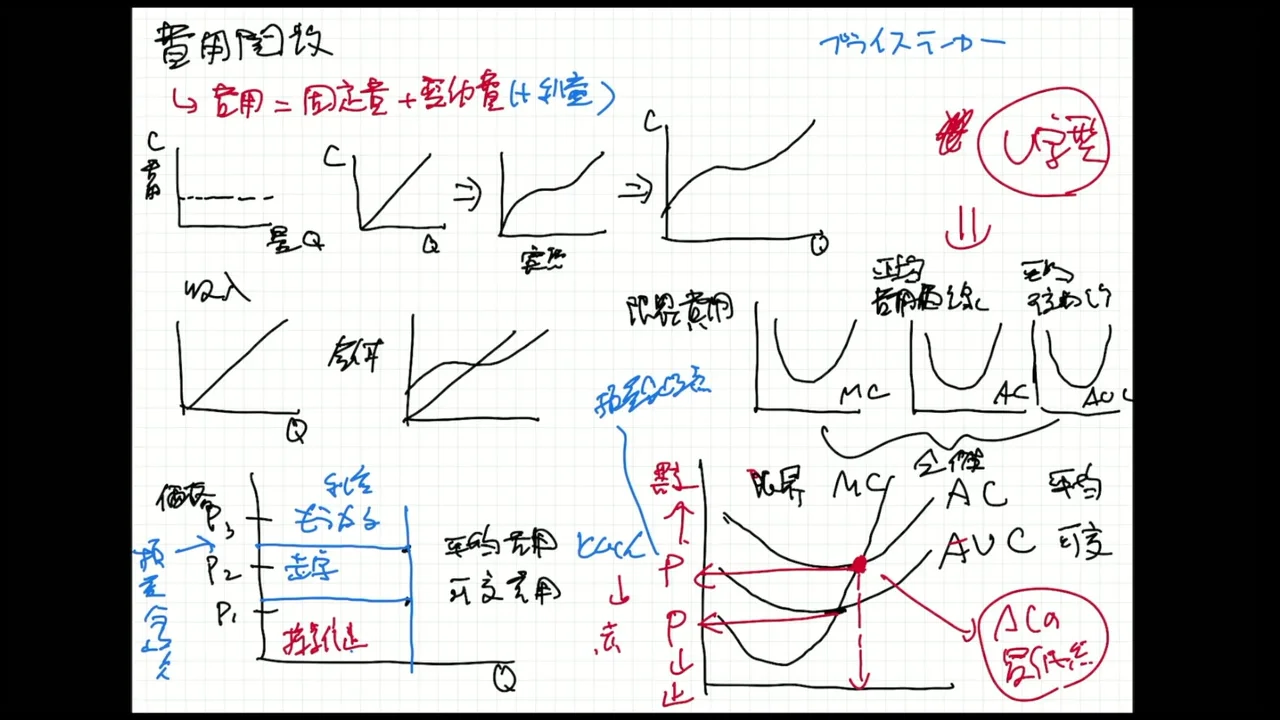 費用関数
プライステーカー
↳ 費用 = 固定費 + 変動費 (+ 利潤)
U字型
C
費用
量 Q
C
Q
⇒
実際
⇒
C
Q
収入
Q
全体
限界費用
MC
平均
費用曲線
AC
平均
AVC
損益分岐点
価格
P3
P2
P1
利益
もうかる
赤字
操業停止
Q
平均費用
可変費用
限界 MC
全体
AC 平均
AVC 可変
P
P
止
ACの
最低点